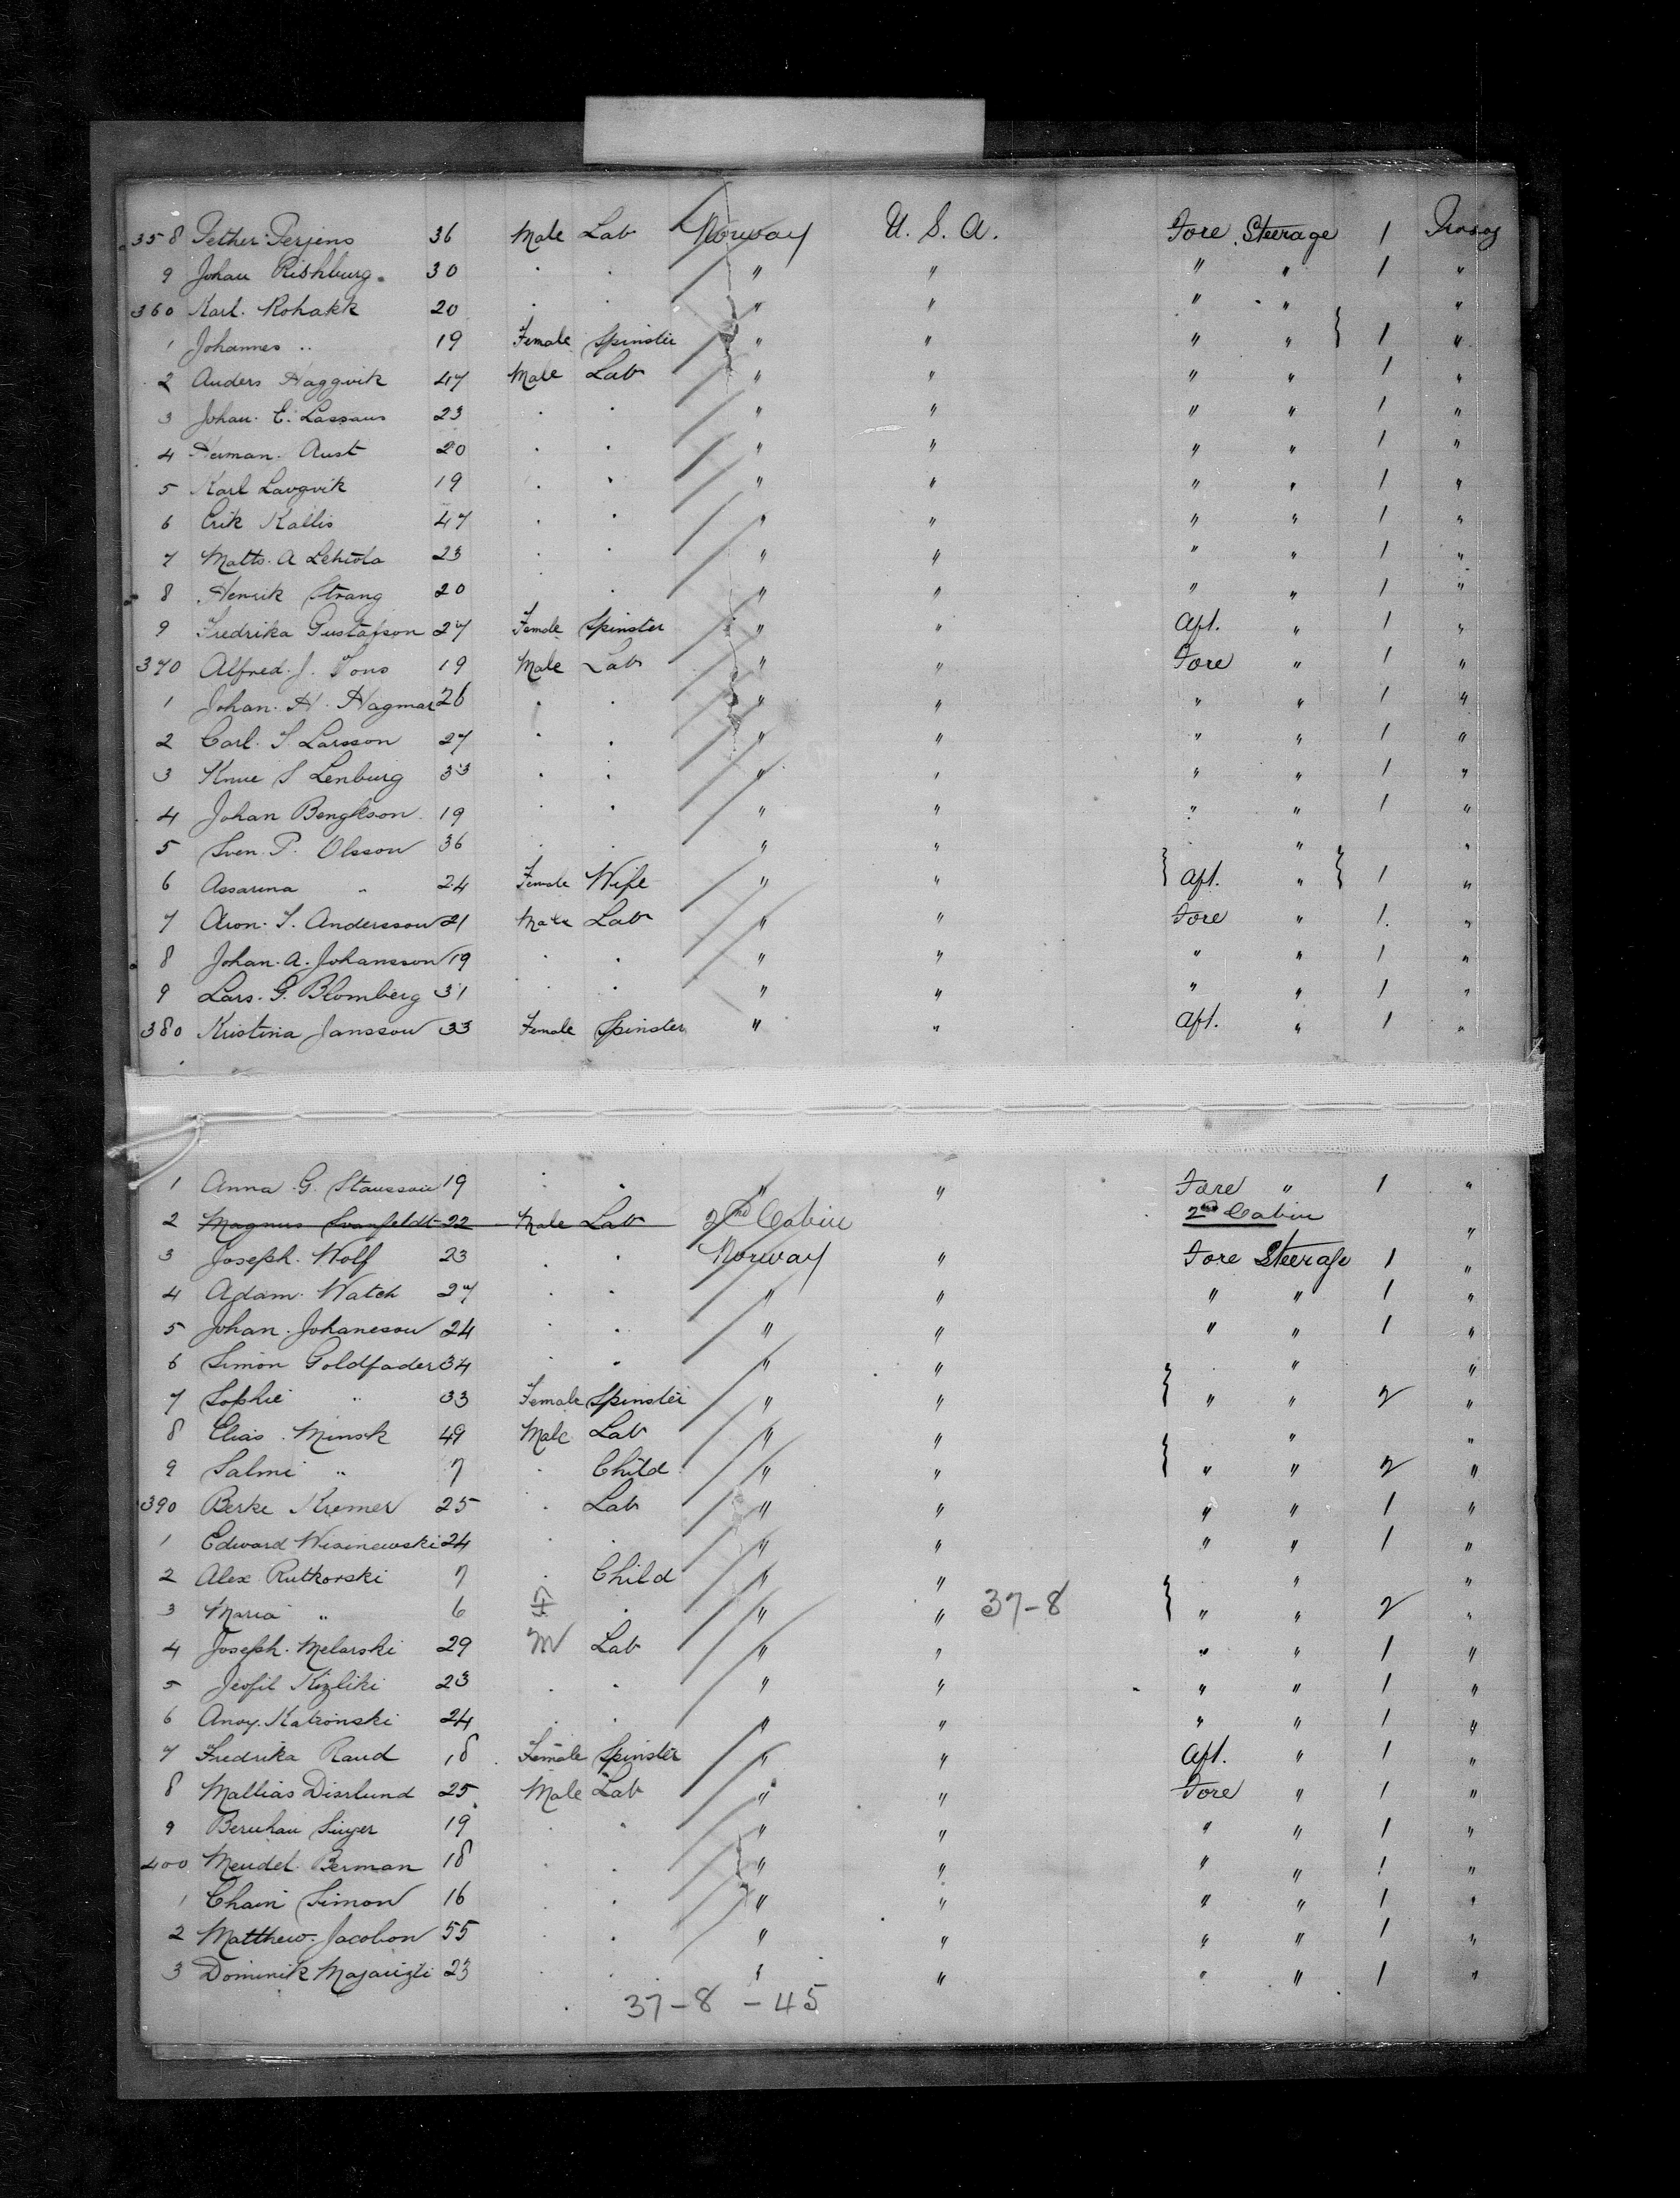 358 Pether Perjens 36 Male Lab Norway U. S. A. Fore Steerage 1
9 Johan Rishburg 30 . . " " " " 1 "
360 Karl. Rohakk 20 . . " " " " "
1 Johannes " 19 Female Spinster " " " " } 1 "
2 Anders Haggvik 47 Male Lab " " " " 1 "
3 Johan. E. Lassaus 23 . . " " " " 1 "
4 Herman. Aust 20 . . " " " " 1 "
5 Karl Laugvik 19 . . " " " " 1 "
6 Erik Kallis 47 . . " " " " 1 "
7 Matts. A Lehtola 23 . . " " " " 1 "
8 Henrik Strang 20 . . " " " " 1 "
9 Fredrika Gustafson 27 Female Spinster " " Aft. " 1 "
370 Alfred. J. 19 Male Lab " " Fore " 1 "
1 Johan. H. Hagman 26 . . " " " " 1 "
2 Carl. S Larsson 27 . . " " " " 1 "
3 Knue S Lenburg 33 . . " " " " 1 "
4 Johan Bengkson 19 . . " " " " 1 "
5 Sven. P. Olsson 36 . . " " " "
6 Assarina " 24 Female Wife " " } Aft. " } 1 "
7 Aron. S. Andersson 21 Male Lab " " Fore " 1. "
8 Johan. A. Johansson 19 . . " " " " 1 "
9 Lars. G. Blomberg 31 . . " " " " 1 "
380 Kristina Jansson 33 Female Spinster " " Aft. " 1 "
1 Anna. G. Stausson 19 . . " " Fore " 1 "
2 Magnus Svanfeldt 22 Male Lab 2nd Cabin 2nd Cabin "
3 Joseph. Wolf 23 . . Norway " Fore Steerage 1 "
4 Adam. Watch 27 . . " " " " 1 "
5 Johan. Johaneson 24 . . " " " " 1 "
6 Simon Goldfader 34 . . " " " "
7 Sophie " 33 Female Spinster " " } " " 2 "
8 Elias. Minsk 49 Male Lab " " " "
9 Salmi " 7 . Child " " } " " 2 "
390 Berke Kremer 25 . Lab " " " " 1 "
1 Edward Wisinewski 24 . . " " " " 1 "
2 Alex Rutkorski 7 . Child " " " "
3 Maria " 6 F . " " 37-8 } " " 2 "
4 Joseph. Melarski 29 M Lab " " " " 1 "
5 Jeofil Kizliki 23 . . " " " " 1 "
6 Anoy. Katronski 24 . . " " " " 1 "
7 Fredrika Raud 18 Female Spinster " " Aft. " 1 "
8 Mallias Disrlund 25 Male Lab " " Fore " 1 "
9 Beruhau Singer 19 . . " " " " 1 "
400 Mendel. Berman 18 . . " " " " 1 "
1 Chaim Simon 16 . . " " " " 1 "
2 Matthew. Jacobon 55 . . " " " " 1 "
3 Dominik 23 . . " " " " 1 "
37-8-45